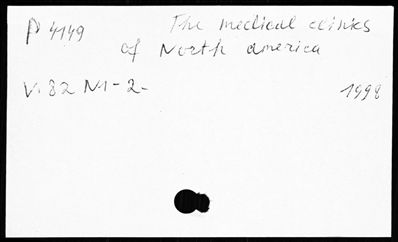 P 4149 The medical clinics
of North america
V. 82 N1-2- 1998